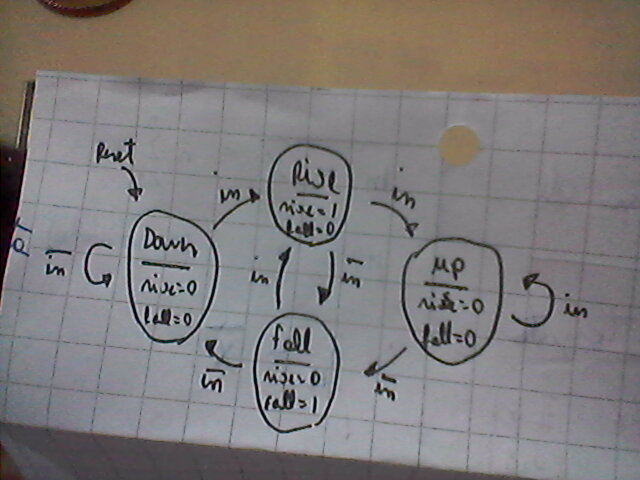 Reset
in
Rise
rise=1
fall=0
in
Down
rise=0
fall=0
in̅
in
in̅
up
rise=0
fall=0
in
fall
rise=0
fall=1
in̅
in̅